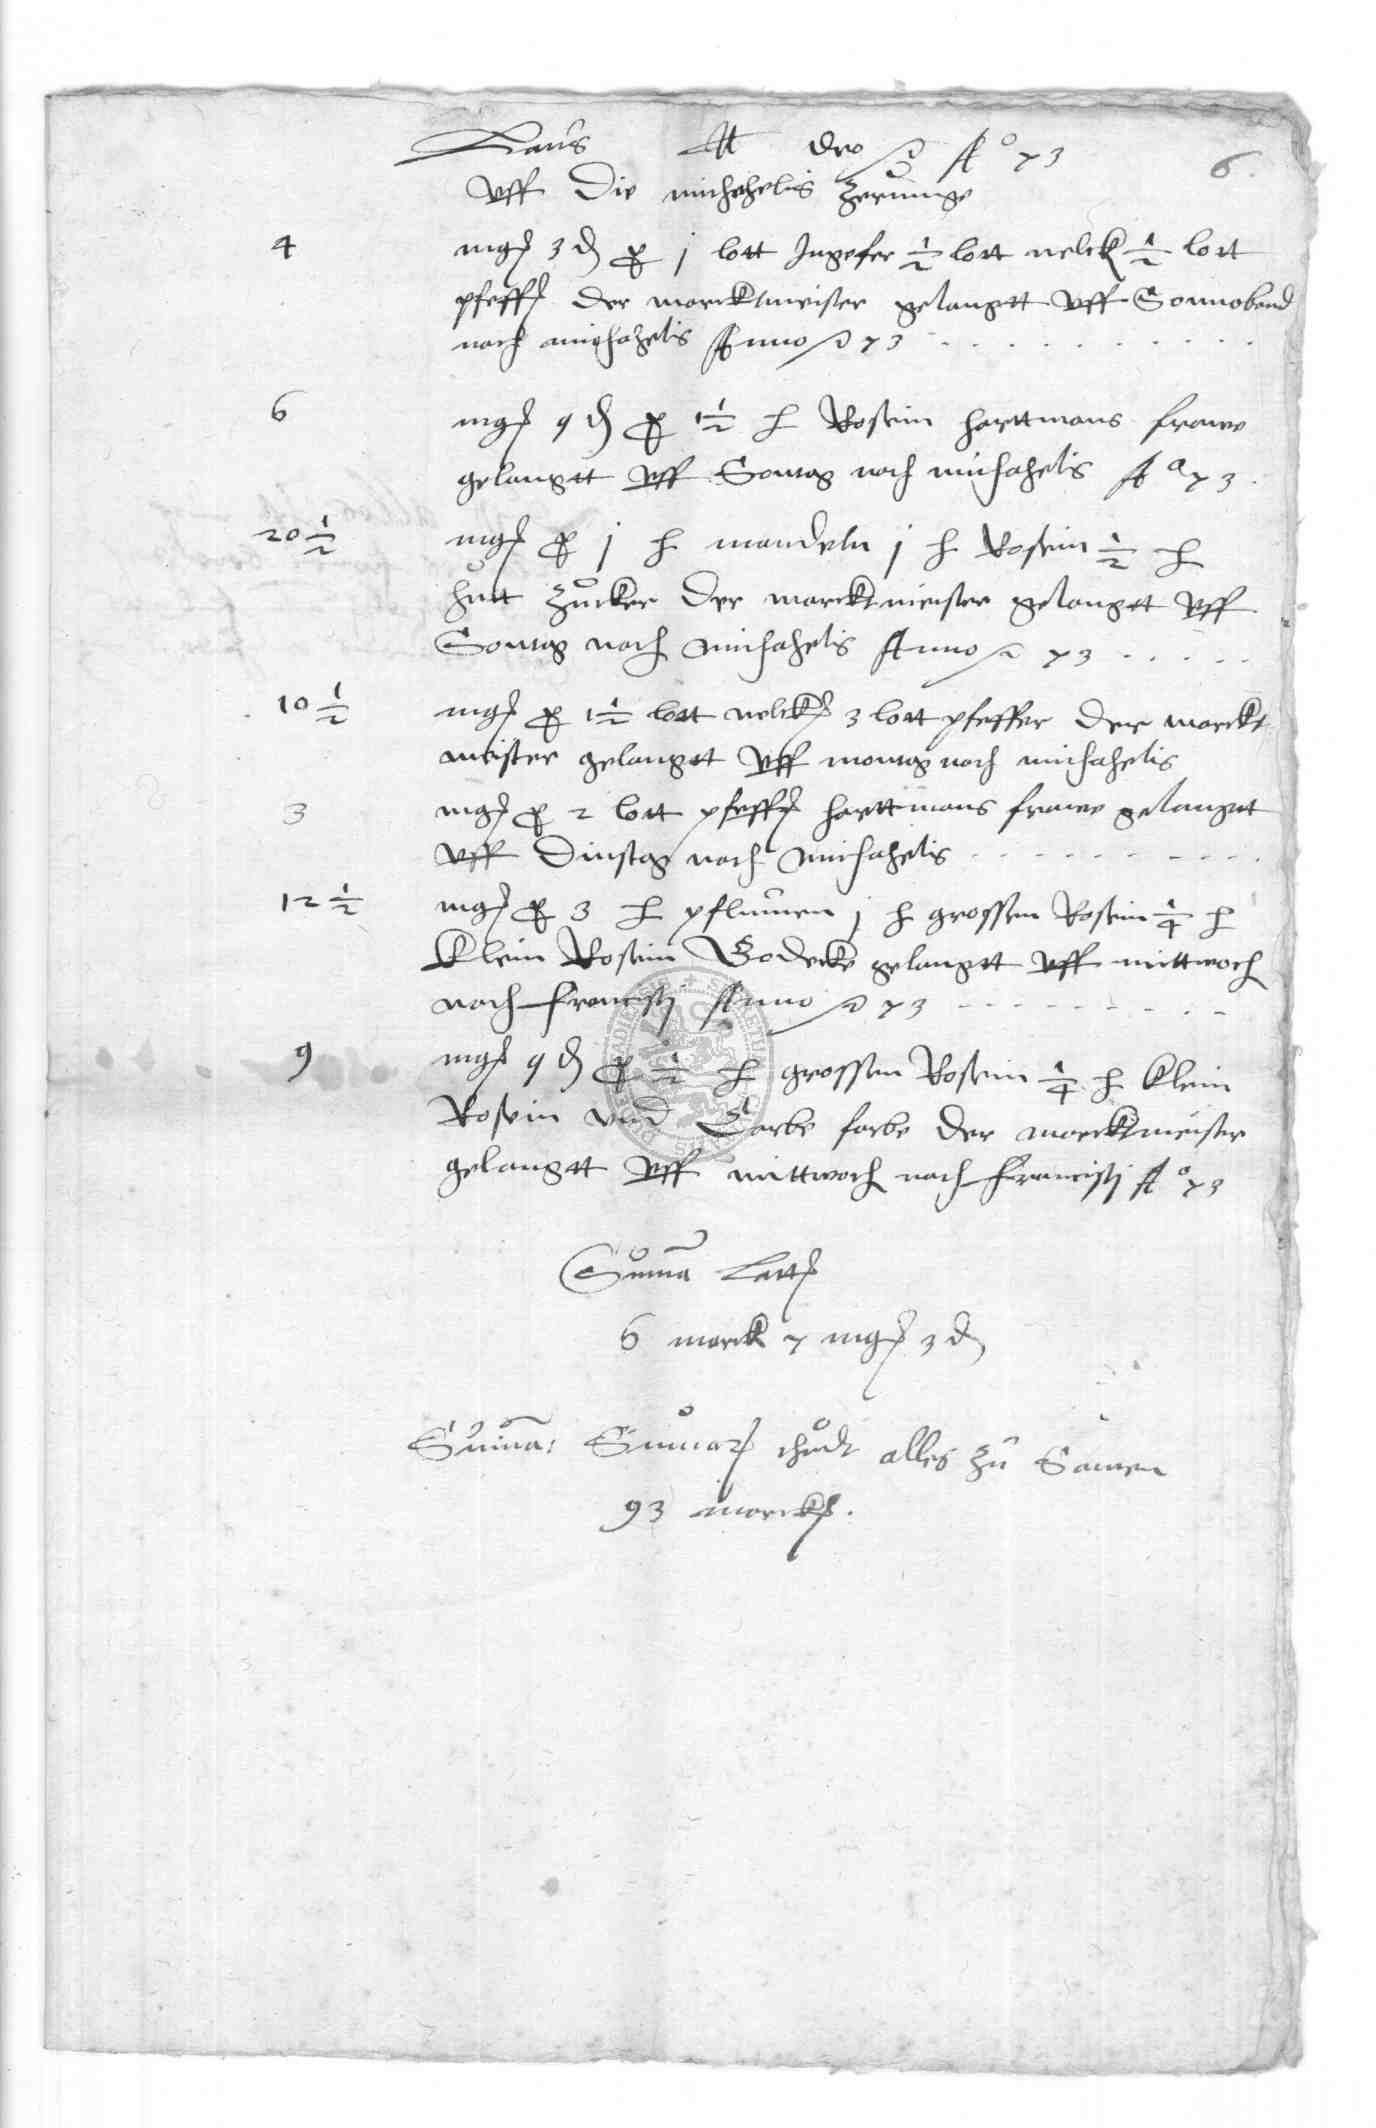 Laus deo A° 73
6.
Uff Die michahelis Zerunge
4 mgl 3 d p j lott Ingefer ½ lott nelck ½ lott
pfeffer Der marcktmeister gelangtt Uff Sonnobend
nach michahelis Anno 73
6 mgl 9 d p 1½ Rosein harttmans frawe
gelangtt Uff Sontag nach michahelis A° 73
20 ½ mgl p j mandeln j Rosein ½
hutt Zucker Der marcktmeister gelangtt Uff
Sontag nach michahelis Anno 73
10 ½ mgl p 1½ lott nelck 3 lott pfeffer Der marckt
meister gelangtt Uff montag nach michahelis
3 mgl p 2 lott pfeffer harttmans frawe gelangtt
Uff Dinstag nach michahelis
12 ½ mgl p 3 pflumen j grossen Rosein ¼
klein Rosein Godecke gelangtt Uff mittwoch
nach francisj Anno 73
9 mgl 9 d p ½ grossen Rosein ¼ klein
Rosein und farbe Der marcktmeister
gelangtt Uff mittwoch nach francisj A° 73
Suma
6 marck 7 mgl 3 d
Suma: Sumar thudt alles zu Samen
93 marck.